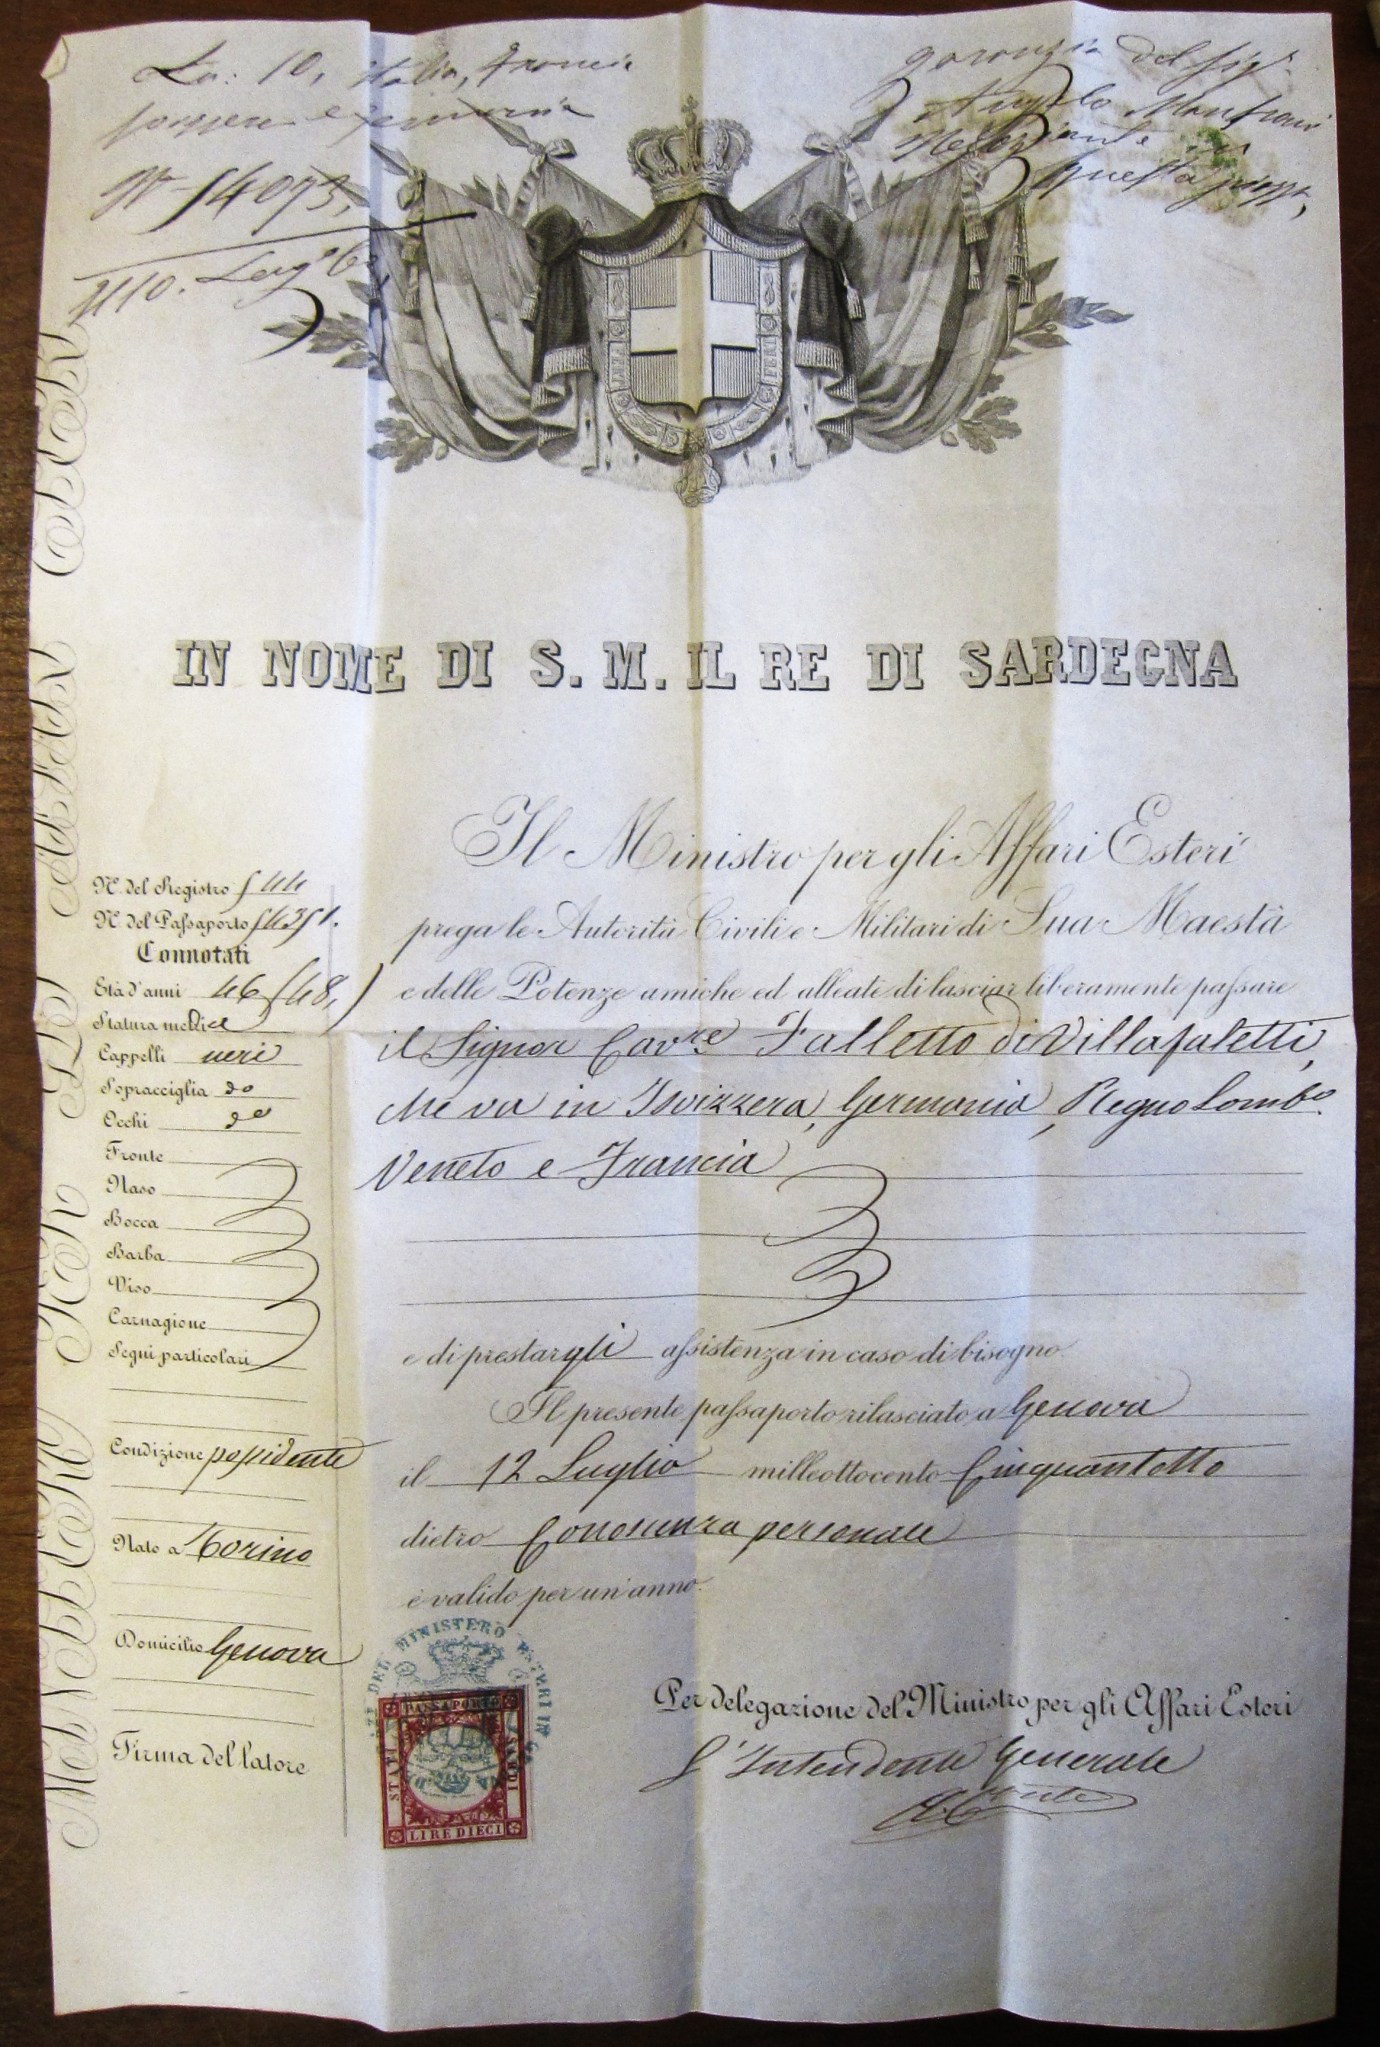 La: 10, Italia, Francia
garanzia del Sig.
Angelo
Negoziante in
questa piazza,
N 14073,
IN NOME DI S. M. IL RE DI SARDEGNA
Il Ministro per gli Affari Esteri
prega le Autorità Civili e Militari di Sua Maestà
e delle Potenze amiche ed alleate di lasciar liberamente passare
il Signor Cavre Falletto di Villafaletti,
che va in Isvizzera, Germania, Regno Lombo
Veneto e Francia
e di prestargli assistenza in caso di bisogno.
Il presente passaporto rilasciato a Genova
il 12 Luglio milleottocento Cinquantotto
dietro Conoscenza personale
è valido per un anno.
N. del Registro 544
N. del Passaporto
Connotati
Età d'anni 46 (48,)
Statura media
Cappelli neri
Sopracciglia do
Occhi do
Fronte
Naso
Bocca
Barba
Viso
Carnagione
Segni particolari
Condizione possidente
Nato a Torino
Domicilio Genova
Firma del latore
DEL MINISTERO ESTERI IN
PASSAPORTI
STATI
SARDI
LIRE DIECI
Per delegazione del Ministro per gli Affari Esteri
L'Intendente Generale